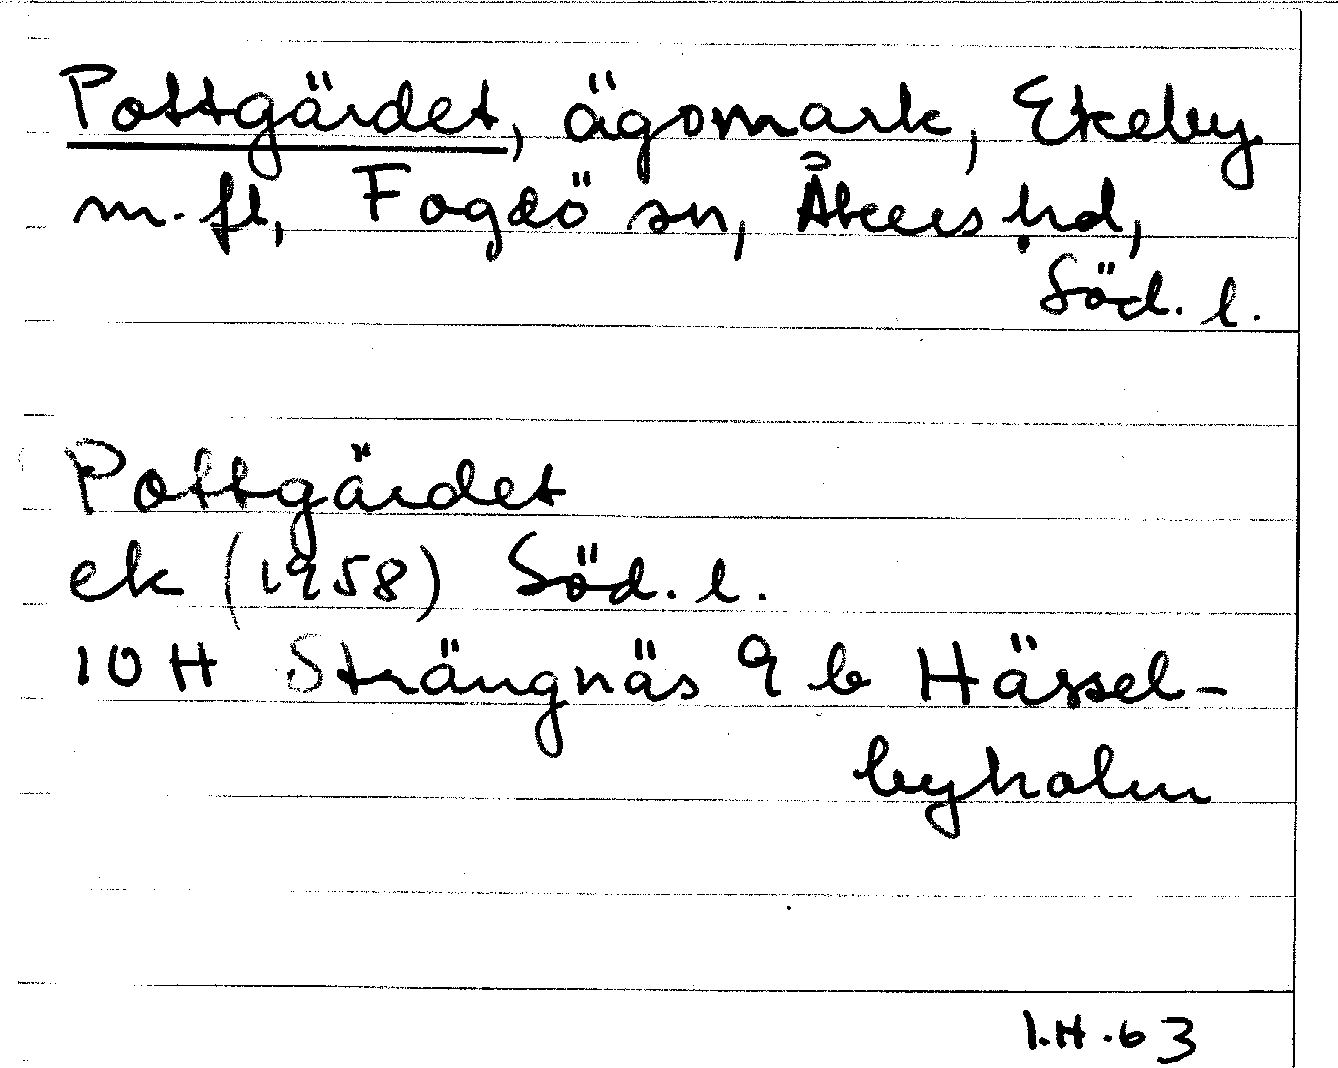 Pottgärdet, ägomark, Ekeby
m. fl, Fogdö sn, Åkers hd,
Söd. l.
Pottgärdet
ek (1958) Söd. l.
10 H Strängnäs 9 b Hässel-
byholm
I.H.63